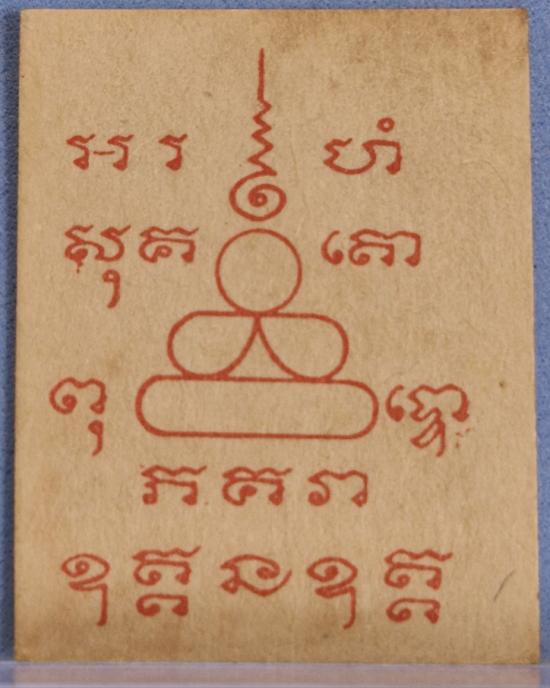 អ រ ហំ
សុគ តោ
ពុ ទ្ធោ
ភគវា
ឧត្តនឧត្ត